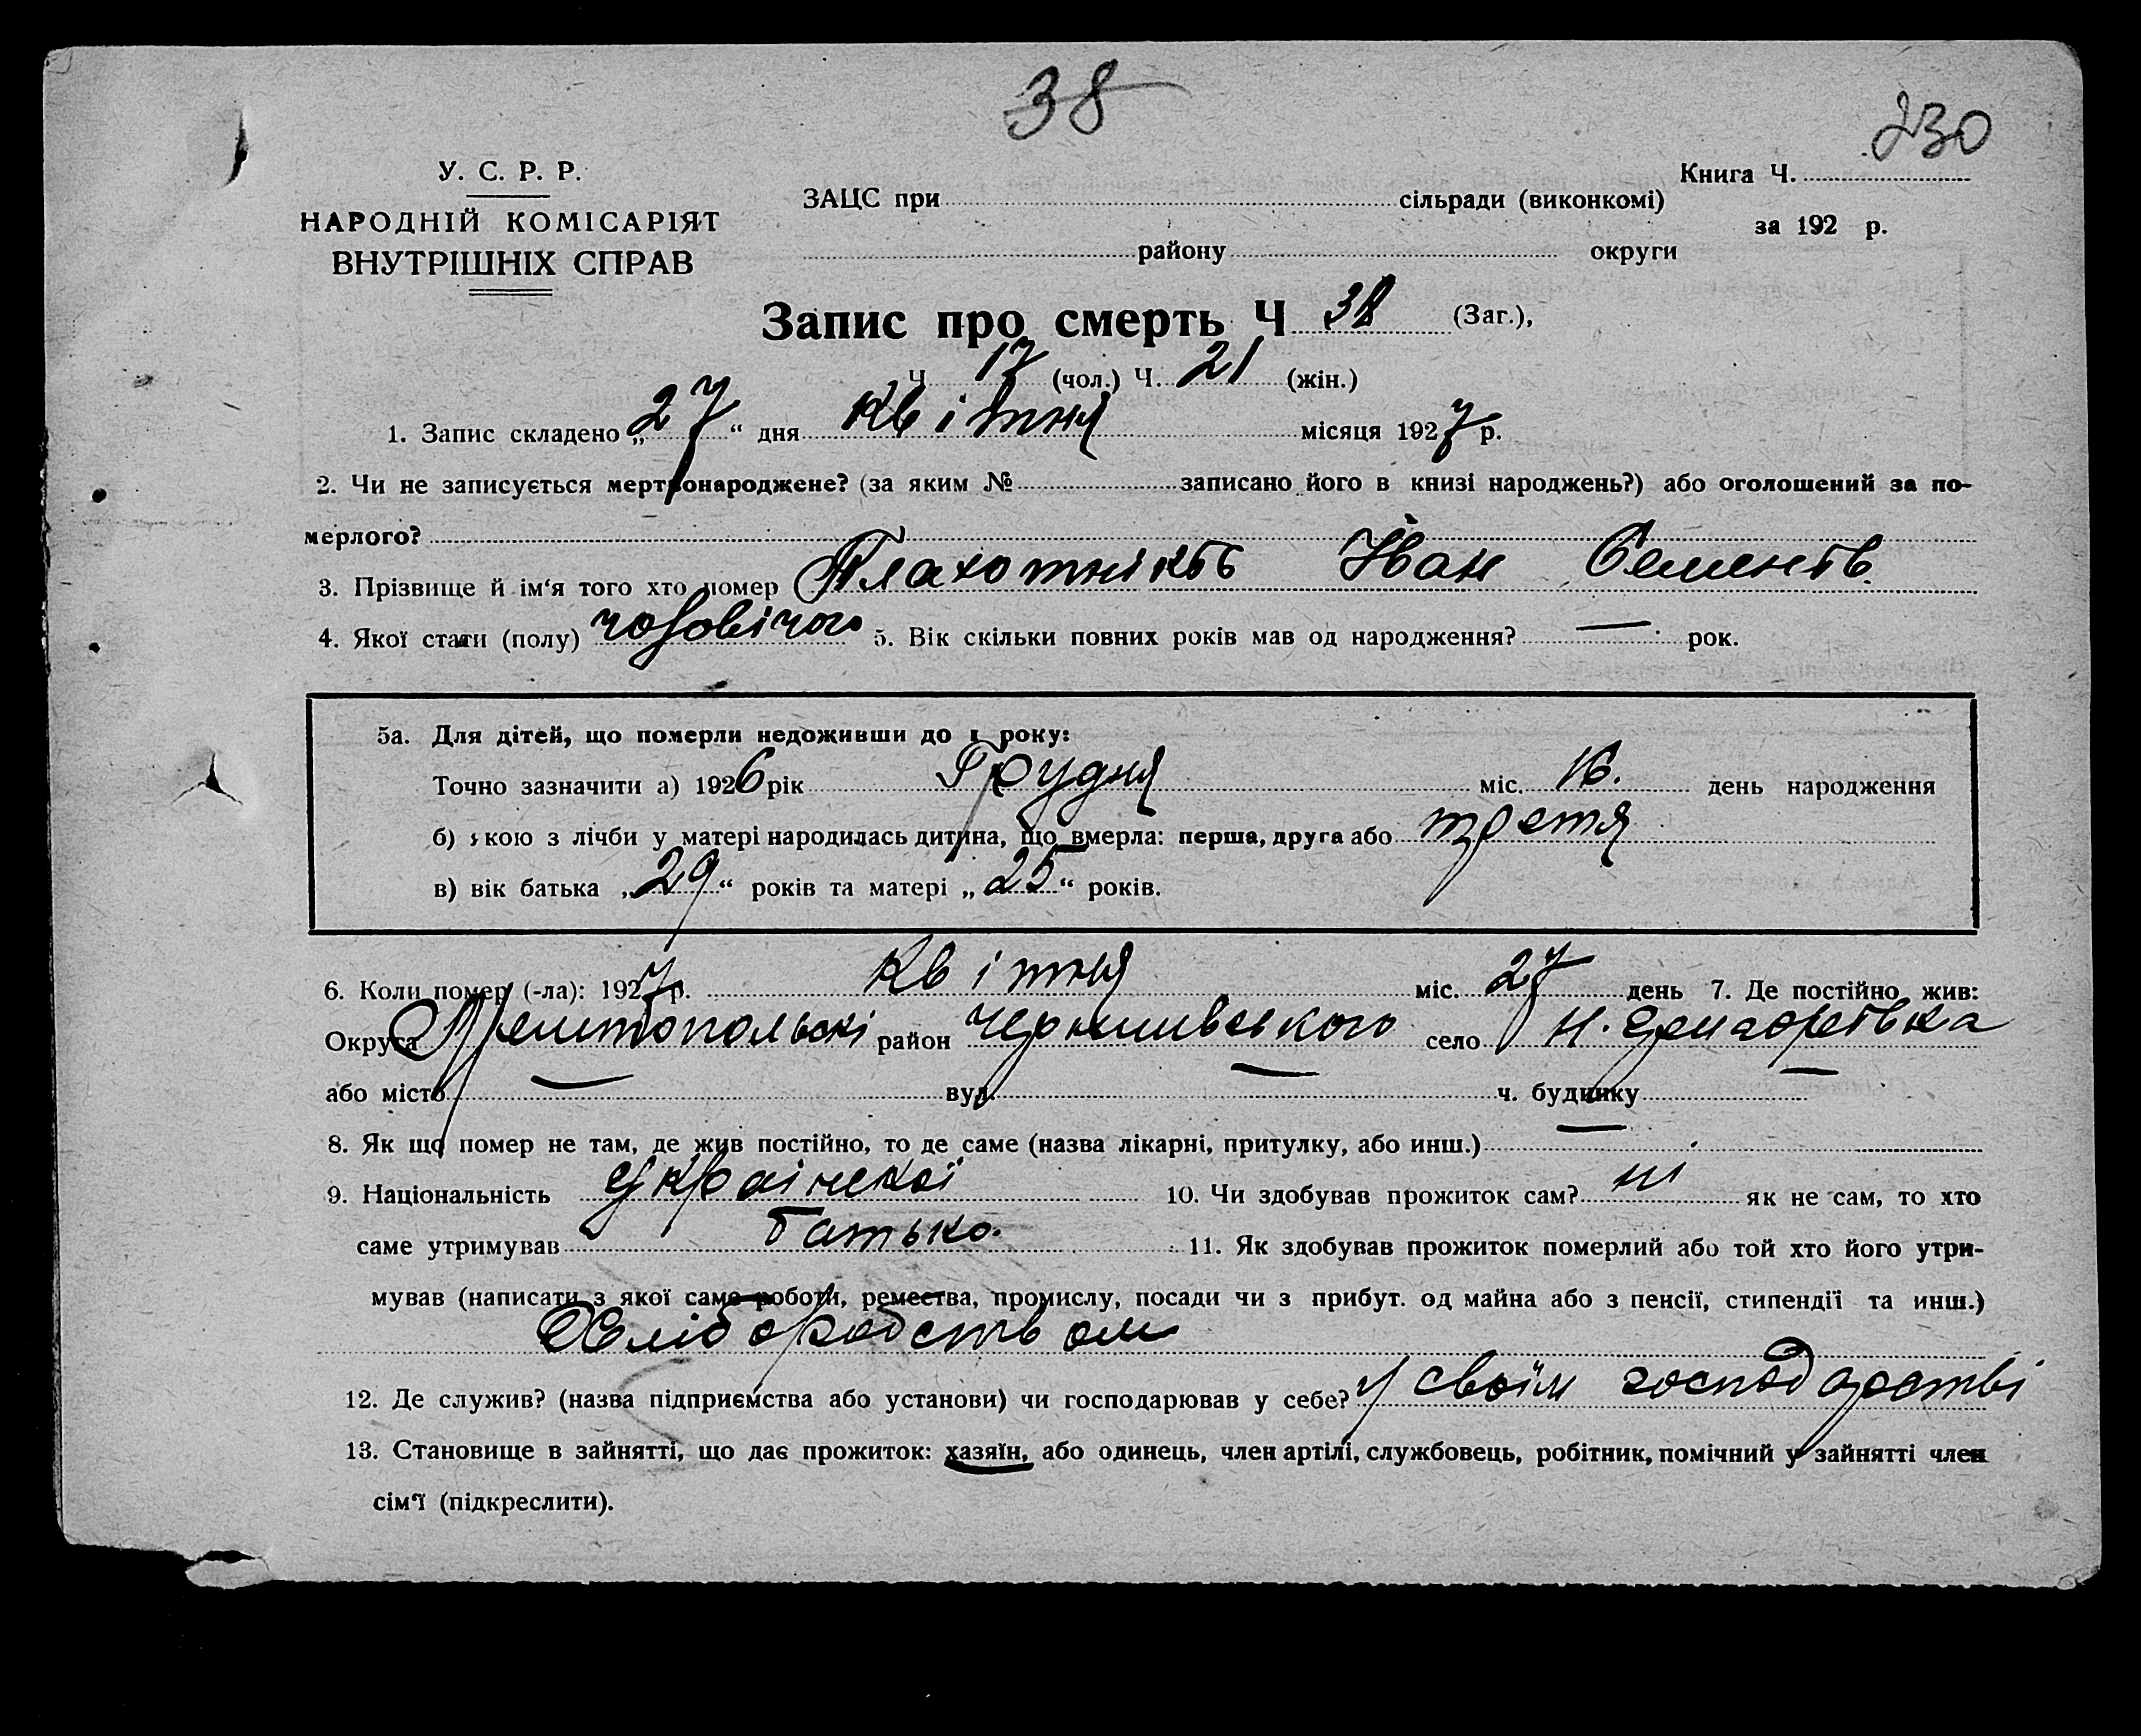 38
230
У. С. Р. Р.
НАРОДНІЙ КОМІСАРІЯТ
ВНУТРІШНІХ СПРАВ
ЗАЦС при сільради (виконкомі)
району округи
Книга Ч.
за 192 р.
Запис про смерть Ч 38 (Заг.),
Ч 17 (чол.) Ч. 21 (жін.)
1. Запис складено „27“ дня квітня місяця 1927 р.
2. Чи не записується мертвонароджене? (за яким № записано його в книзі народжень?) або оголошений за по-
мерлого?
3. Прізвище й ім'я того хто помер Плахотніков Іван Семенов
4. Якої стати (полу) чоловічого 5. Вік скільки повних років мав од народження? — рок.
5а. Для дітей, що померли недоживши до 1 року:
Точно зазначити а) 1926 рік Грудня міс. 16. день народження
б) якою з лічби у матері народилась дитина, що вмерла: перша, друга або третя
в) вік батька „29“ років та матері „25“ років.
6. Коли помер (-ла): 1927 р. квітня міс. 27 день 7. Де постійно жив:
Округа Мелитопольскі район село Н.
або місто — вул. — ч. будинку —
8. Як що помер не там, де жив постійно, то де саме (назва лікарні, притулку, або инш.) —
9. Національність Украінскої 10. Чи здобував прожиток сам? ні як не сам, то хто
саме утримував батько. 11. Як здобував прожиток померлий або той хто його утри-
мував (написати з якої саме роботи, ремества, промислу, посади чи з прибут. од майна або з пенсії, стипендії та инш.)
Хліборобством
12. Де служив? (назва підприємства або установи) чи господарював у себе? У своїм господарстві
13. Становище в зайнятті, що дає прожиток: хазяїн, або одинець, член артілі, службовець, робітник, помічний у зайнятті член
сім'ї (підкреслити).